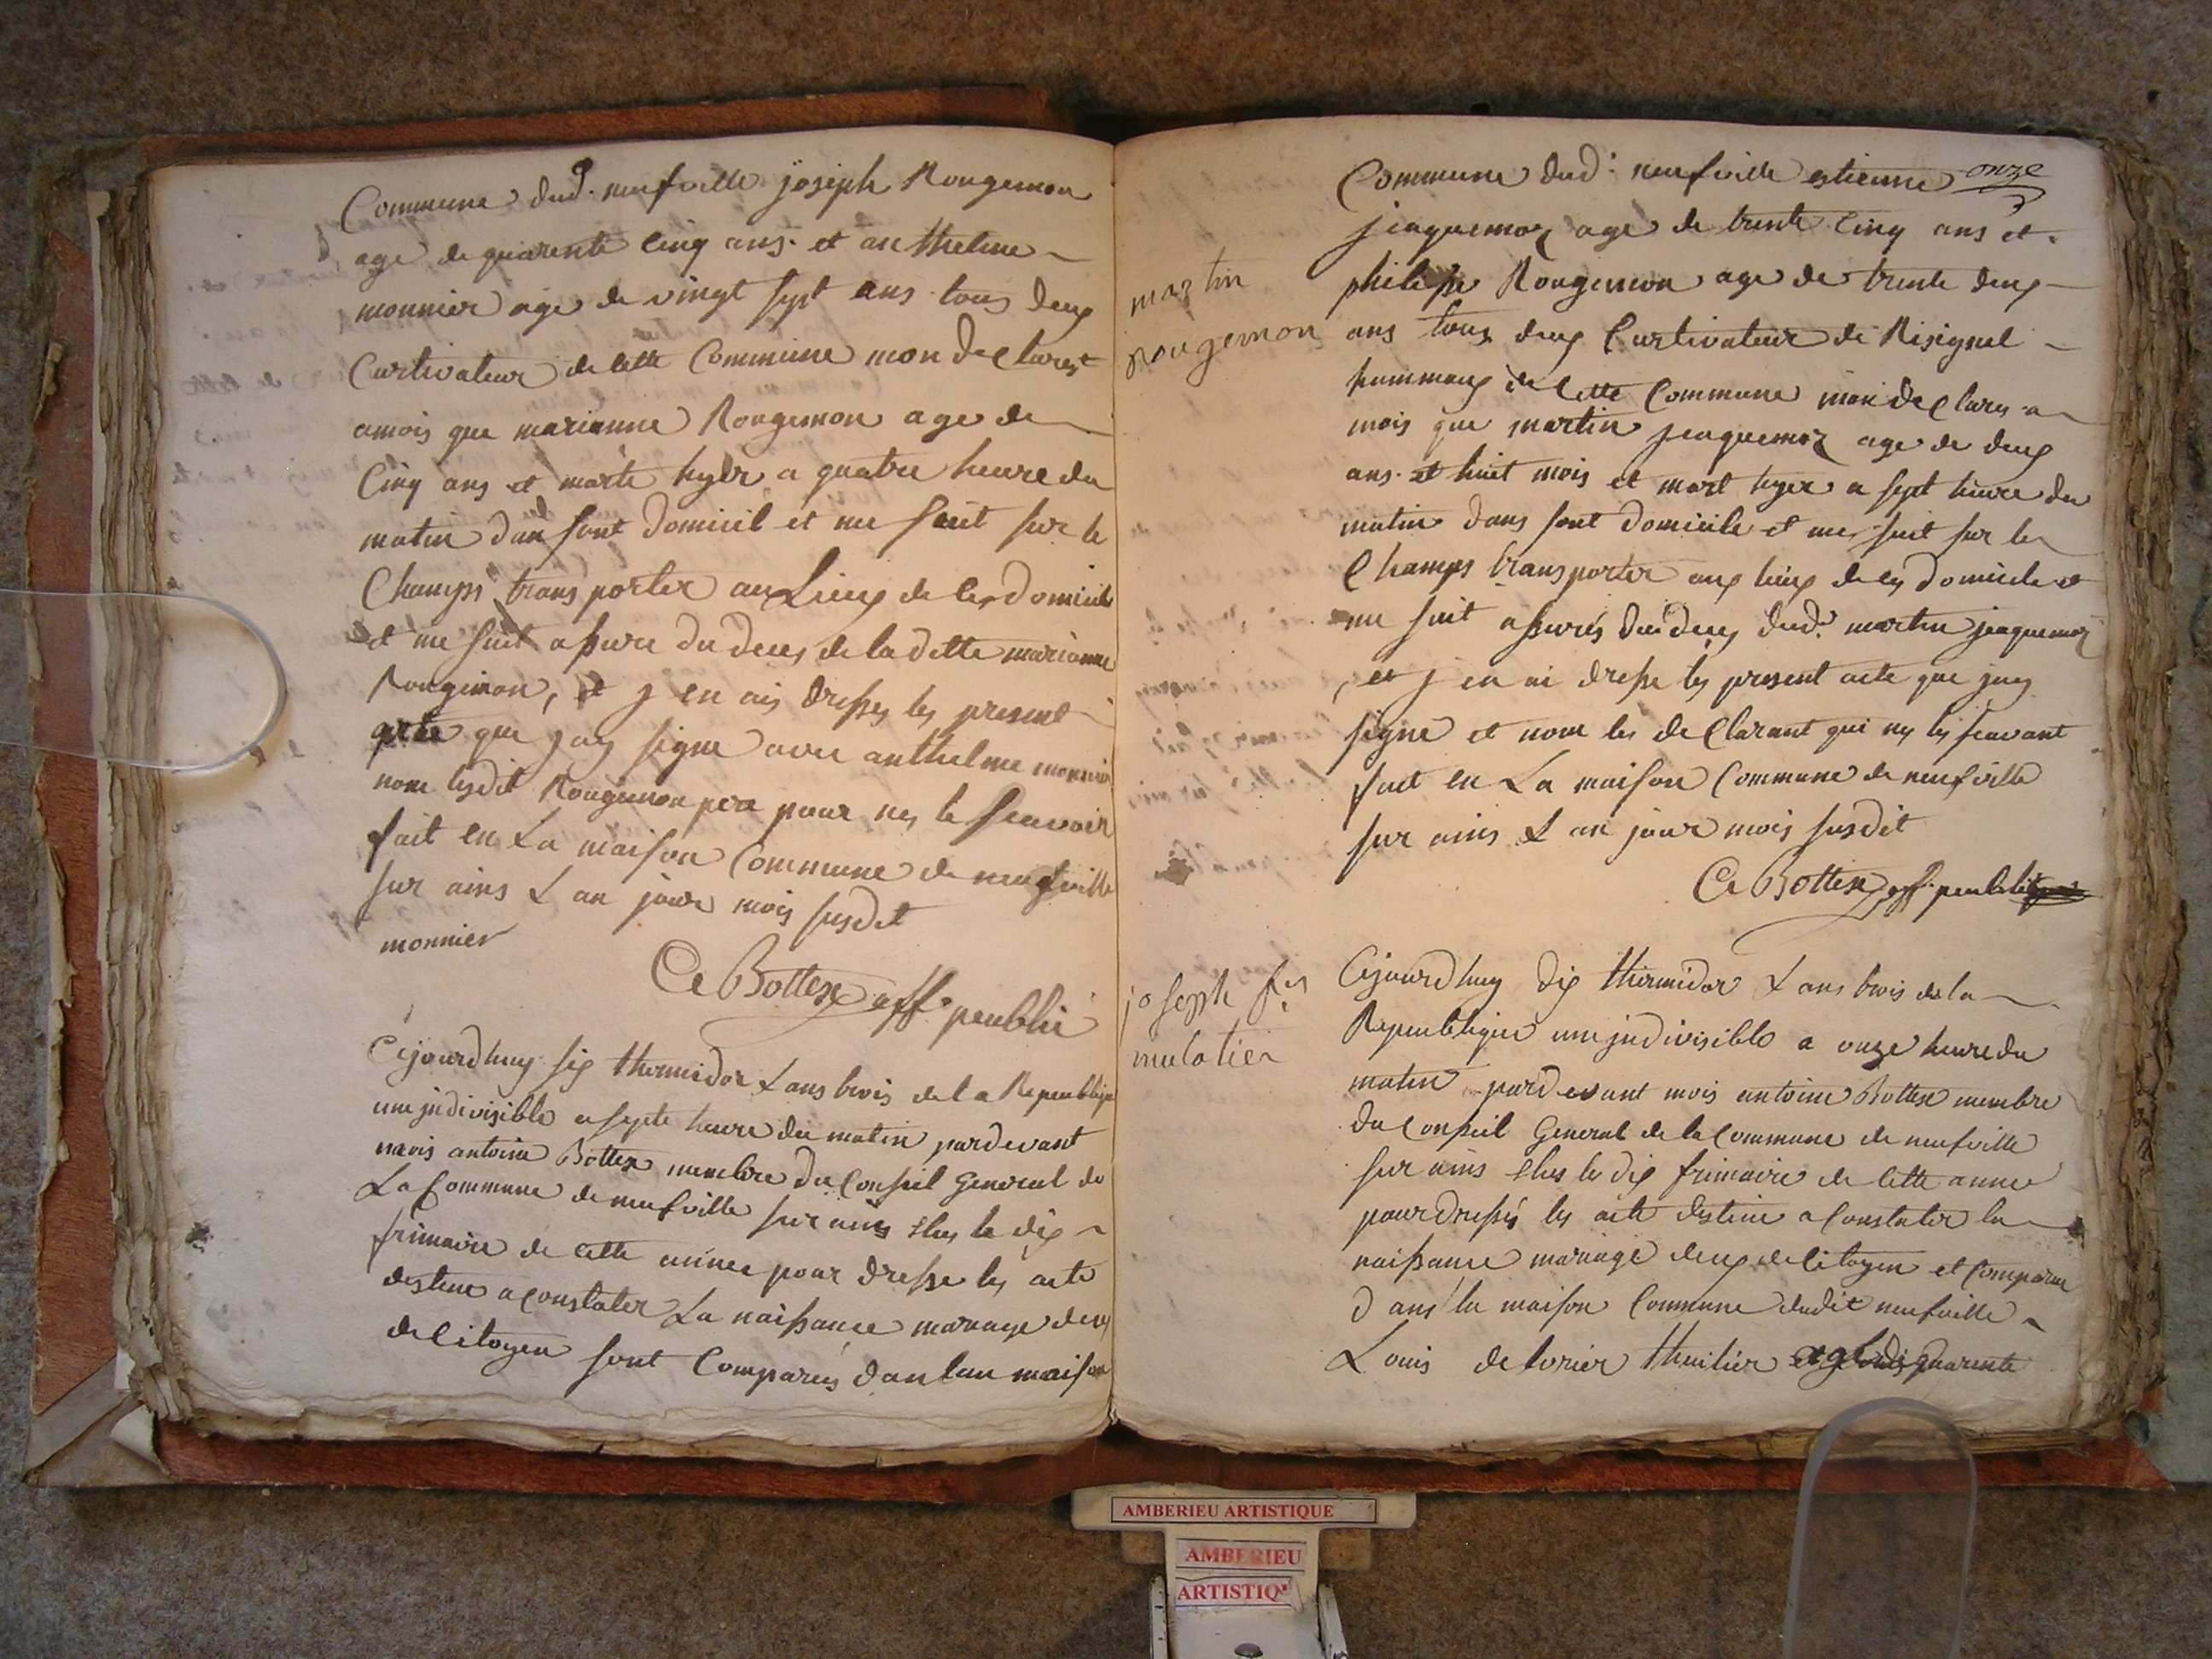 Commune dud. neufville joseph Rougemon
age de quarente Cinq ans. et anthelme
monnier age de vingt sept ans tous deux
Curtivateur de Cette Commune mon declares
amois que marianne Rougemon age de
Cinq ans et morte hyer a quatre heure du
matin dan sont domicil et me suit sur le
Champs transporter au Lieux de les domicile
et me suit assure du deces de la ditte marianne
Rougemon, et j en ais dresses les present
acte que jay signe avec anthelme monnier
nom lesdit Rougemon pere pour ney le scavoir
fait en La maison Commune de neufville
sur ains L an jour mois susdit
monnier
Ce Bottex off. peublic
Cejourdhuy six thermidor L ans trois de la Republique
une jndivisible a septe heure du matin pardevant
mois antoine Bottex membre du Conseil General de
La Commune de neufville sur ains elus le dix
frimaire de cette annee pour dresse les acte
destine a Constater La naissance mariage deces
de Citoyen sont Comparus dan lau maison
onze
Commune dud. neufville estienne
jeaquemoz age de trente Cinq ans et
philippe Rougemon age de trente deux
ans tous deux Curtivateur de Risignel
hammaux de Cette Commune mon declares a
mois que martin jeaquemoz age de deux
ans. et huit mois et mort hyer a sept heure du
matin dans sont domicile et me suit sur les
Champs transporter aux lieux de les domicile et
me suit assures du deces dud. martin jeaquemoz
, et j en ai dresse les present acte que jay
signe et nom les declarant qui ney les scavant
fait en La maison Commune de neufville
sur ains L an jour mois susdit
Ce Bottex off. peublic
martin
rougemon
joseph f.s
mulatier
Cejourdhuy dix thermidor L ans trois de la
Republique une jndivisible a onze heure du
matin pardevant mois antoine Bottex membre
du Conseil General de la Commune de neufville
sur ains elus le dix frimaire de Cette annee
pour dresses les acte destine a Constater la
naissance mariage deces de Citoyen et Comparue
dans la maison Commune dudit neufville
Louis delorier thuilier age de quarente
AMBERIEU ARTISTIQUE
AMBERIEU
ARTISTIQ